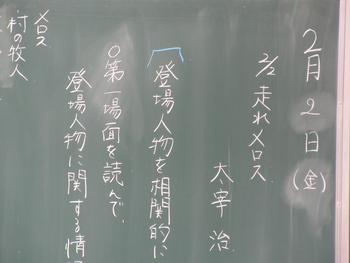 2月2日(金)
2/2 走れメロス
太宰治
「登場人物を相関的に
○第一場面を読んで、
登場人物に関する情
メロス
村の牧人